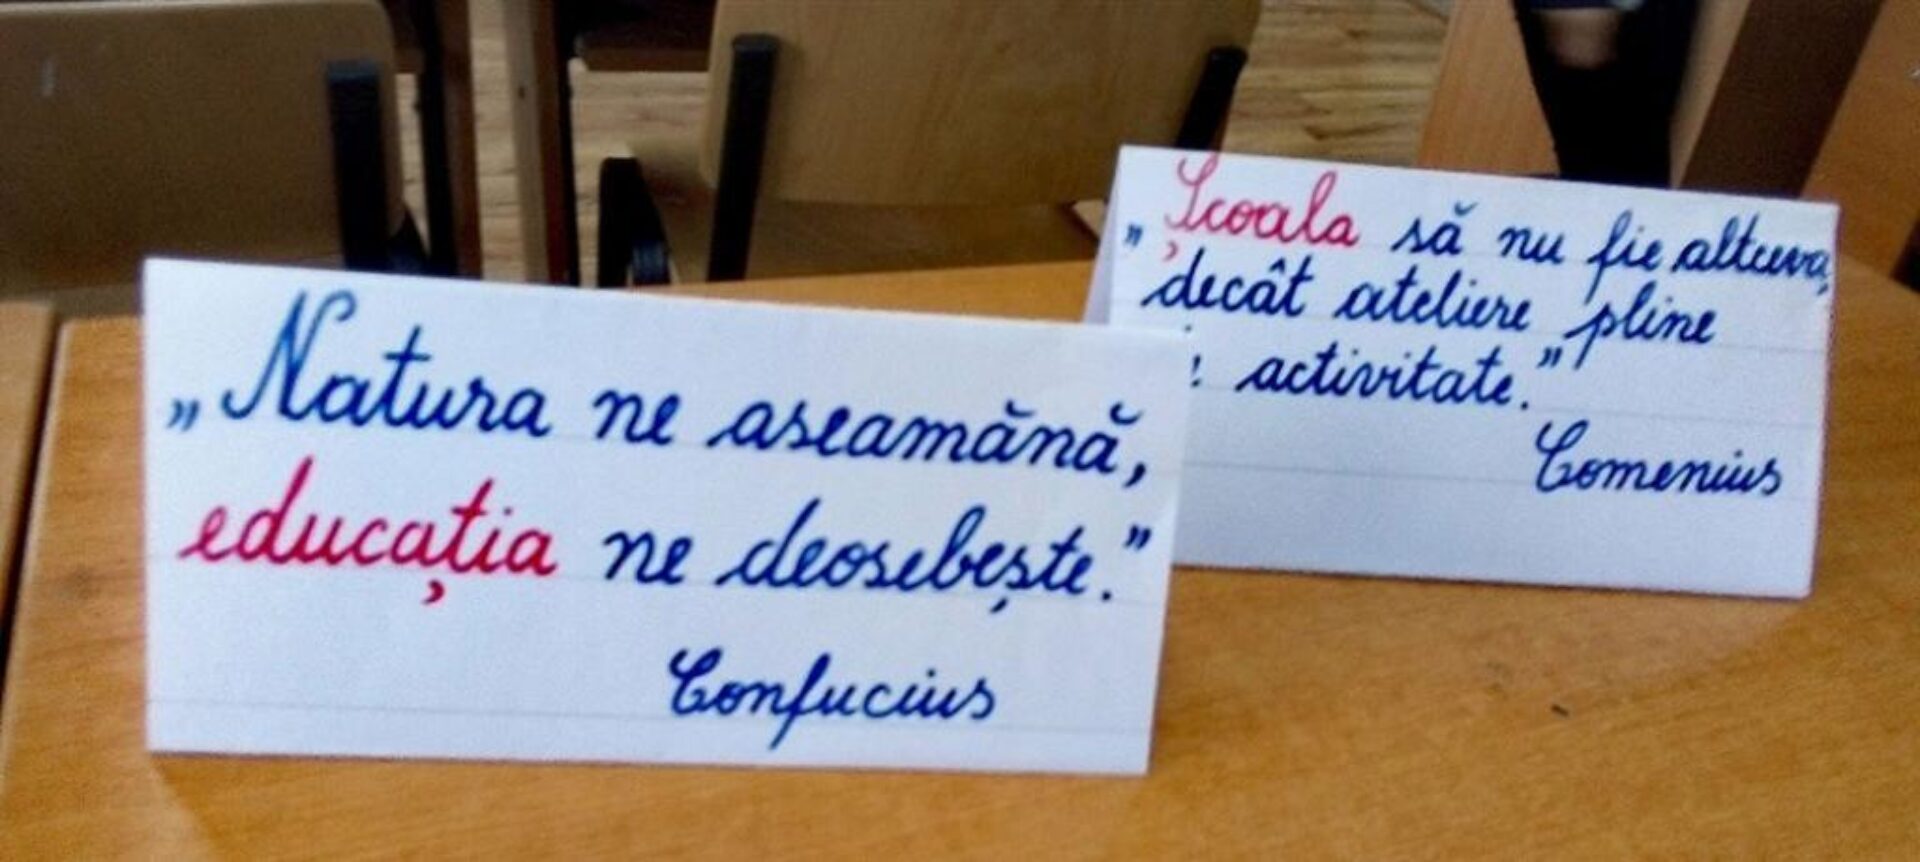 „Natura ne aseamănă,
educația ne deosebește.”
Confucius
„Școala să nu fie altceva,
decât ateliere pline
activitate.”
Comenius